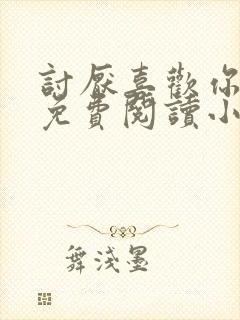 討厭喜歡你
免費閱讀小
舞淺墨